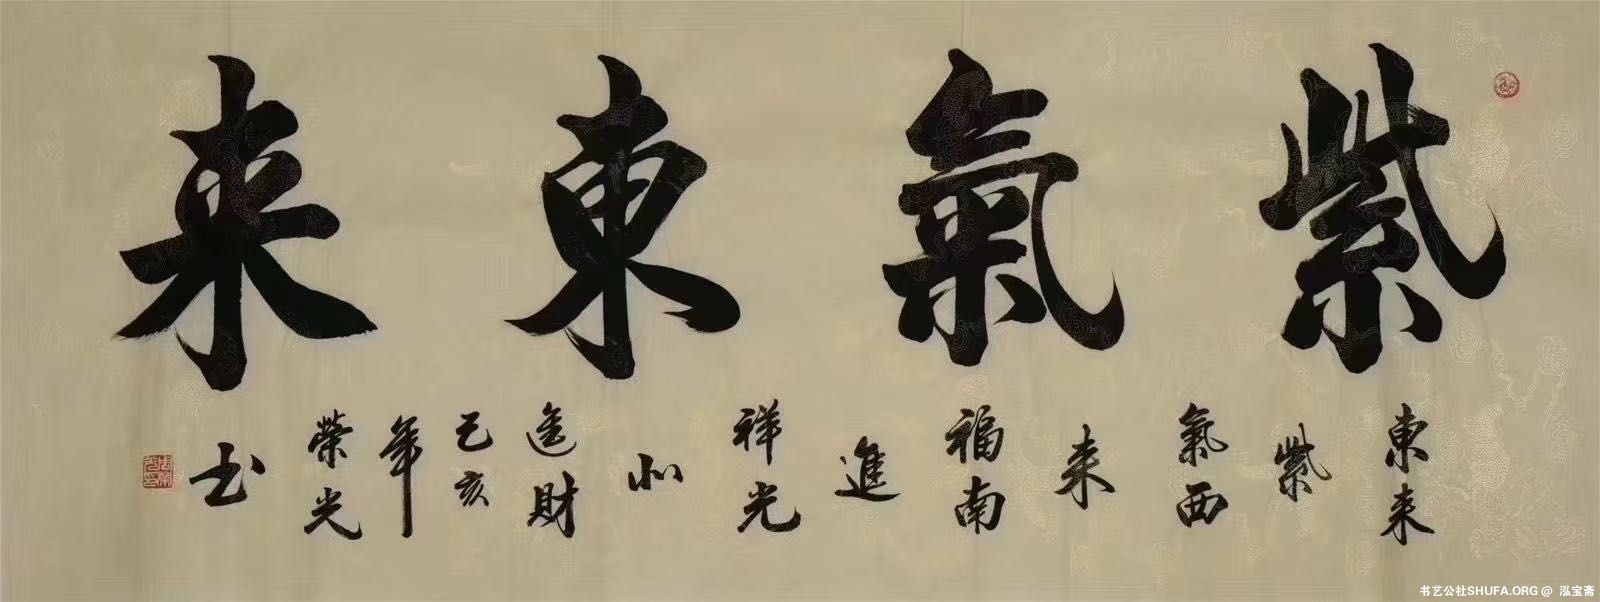 紫氣東来
東来
紫
氣西
来
福南
進
祥光
北
進財
己亥
年
榮光
书
书艺公社SHUFA.ORG @ 泓宝斋